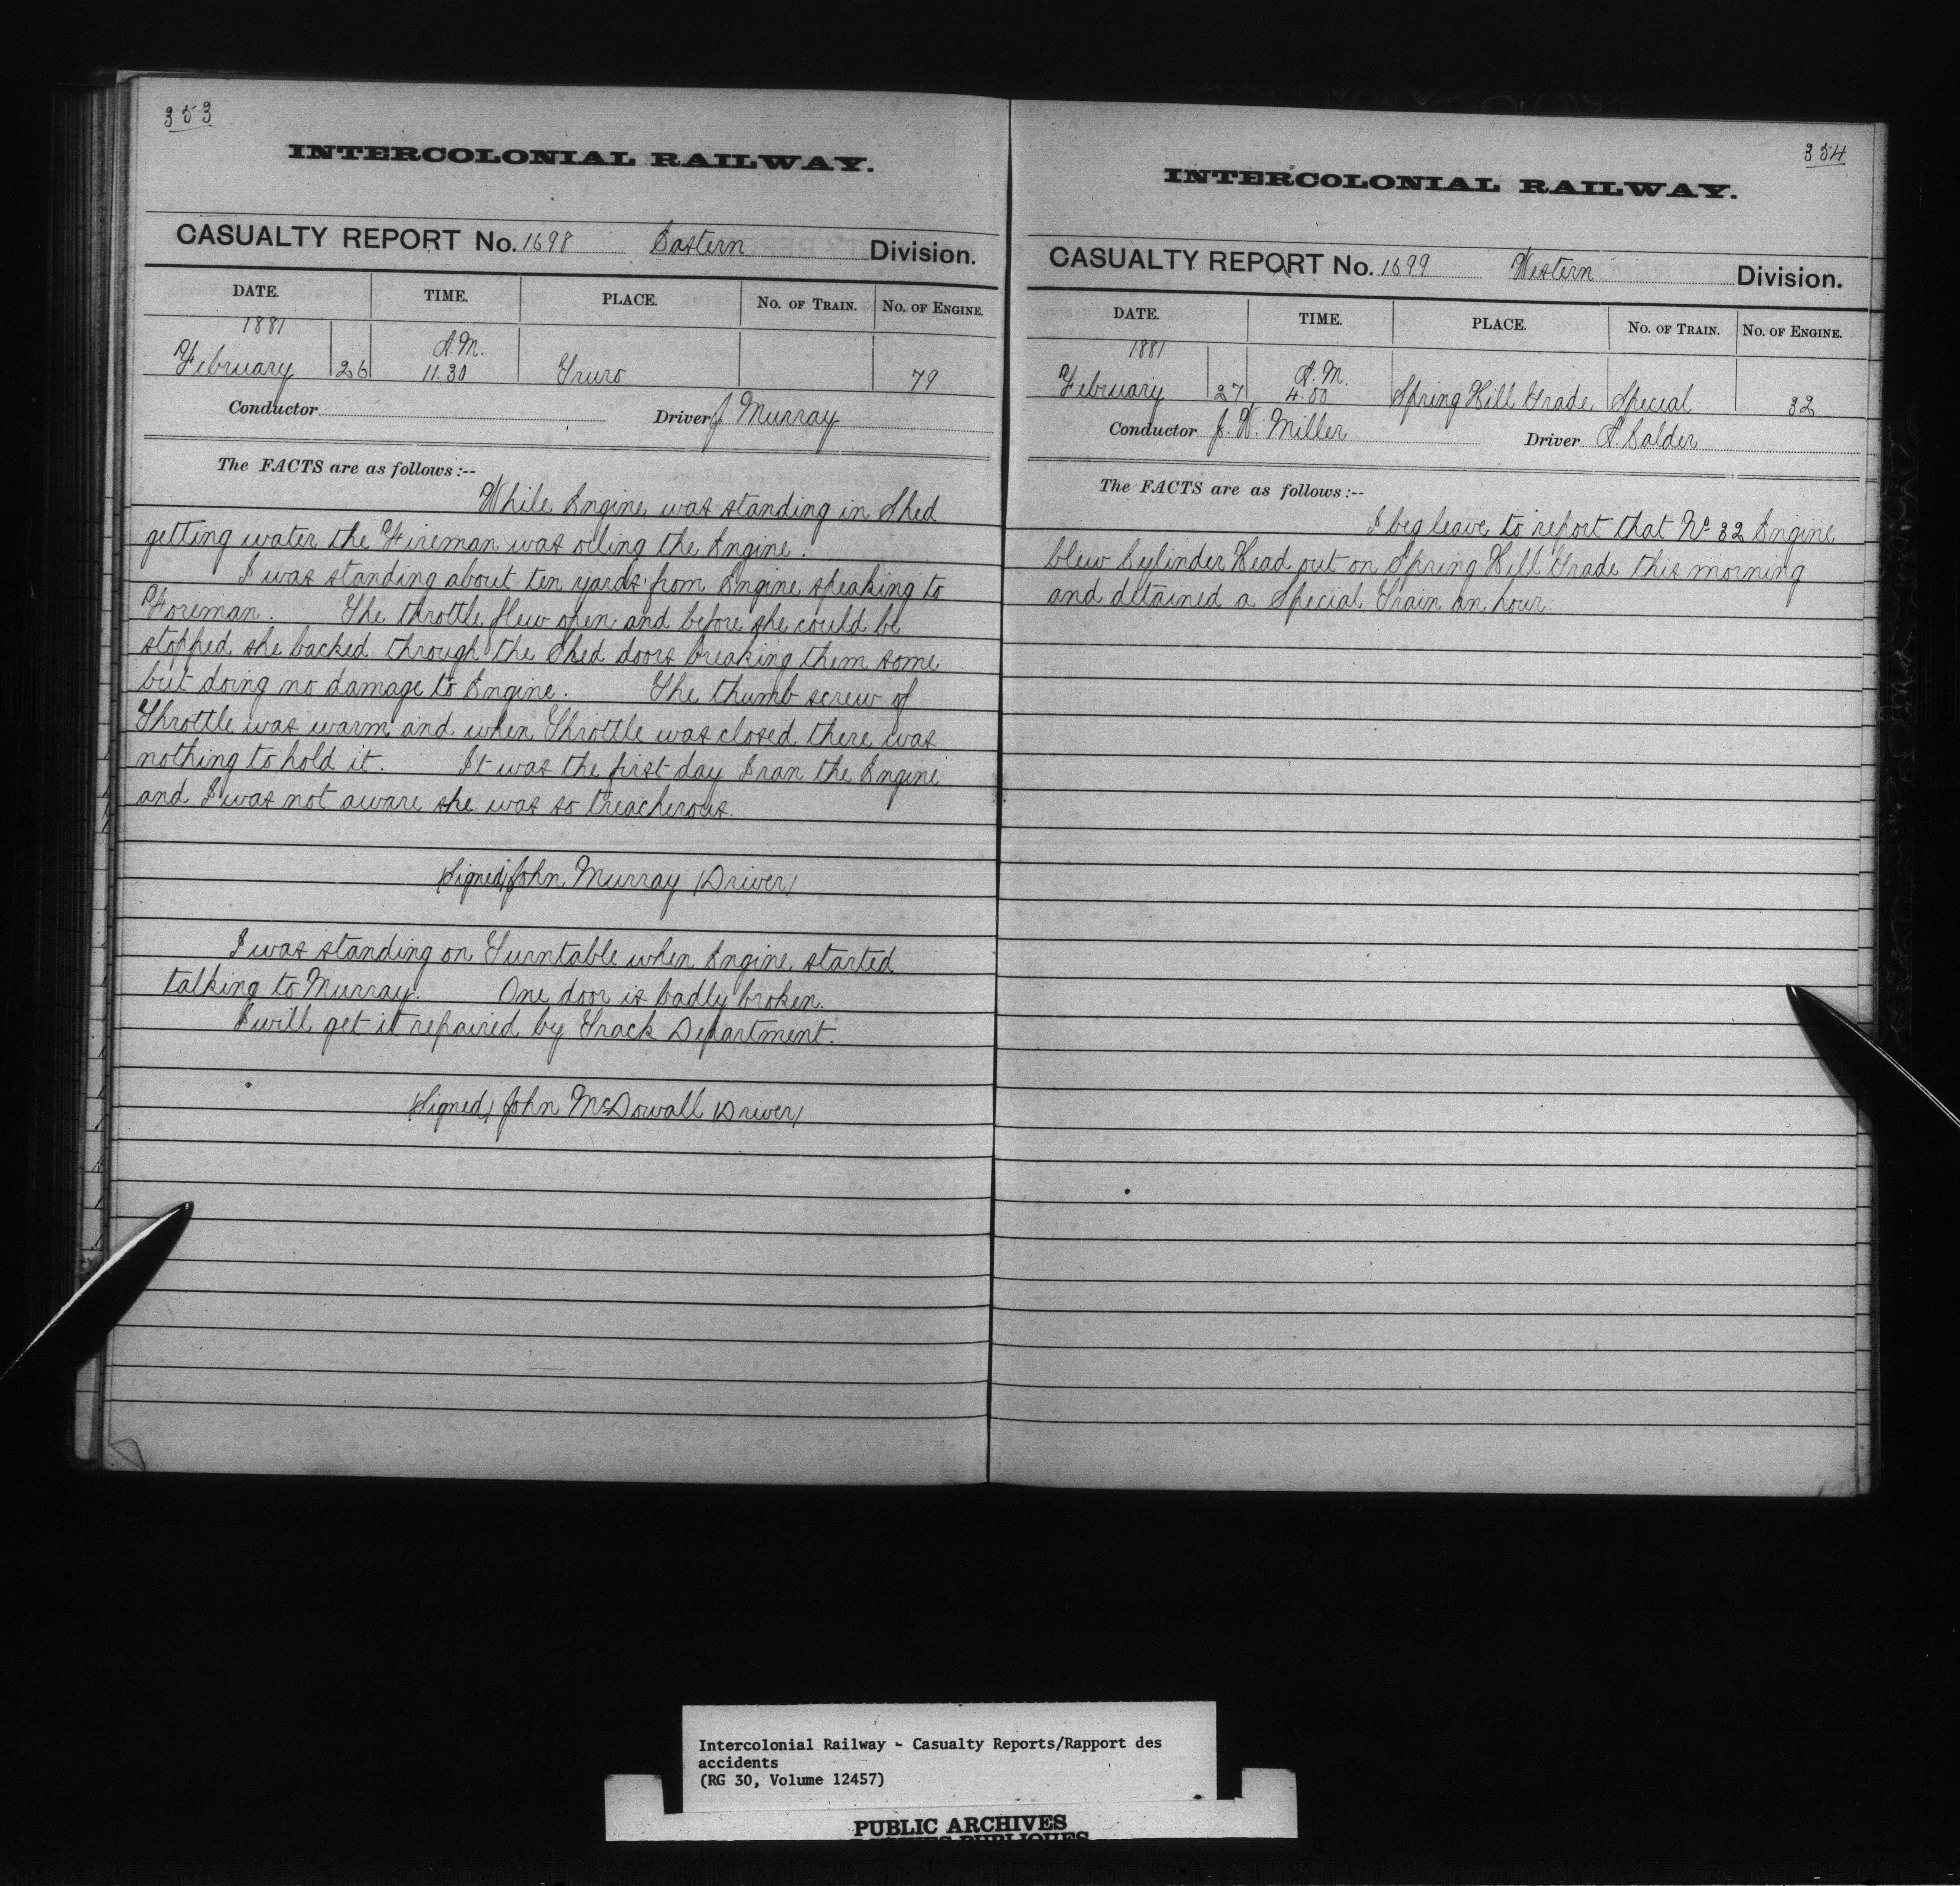 353
INTERCOLONIAL RAILWAY.
CASUALTY REPORT No. 1698 Eastern Division.
DATE. TIME. PLACE. No. of Train. No. of Engine.
1881 A.M.
February 26 11.30 Truro 79
Conductor Driver J Murray
The FACTS are as follows:--
While Engine was standing in Shed
getting water the Fireman was oiling the Engine.
I was standing about ten yards from Engine speaking to
Foreman. The throttle flew open and before she could be
stopped she backed through the Shed doors breaking them some
but doing no damage to Engine. The thumb screw of
Throttle was warm and when Throttle was closed there was
nothing to hold it. It was the first day I ran the Engine
and I was not aware she was so treacherous.
(Signed) John Murray (Driver)
I was standing on Turntable when Engine started
talking to Murray. One door is badly broken.
I will get it repaired by Track Department.
(Signed) John McDowall (Driver)
354
INTERCOLONIAL RAILWAY.
CASUALTY REPORT No. 1699 Western Division.
DATE. TIME. PLACE. No. of Train. No. of Engine.
1881 A.M.
February 27 4.00 Spring Hill Grade Special 32
Conductor J. W. Miller Driver A. Calder
The FACTS are as follows:--
I beg leave to report that No 32 Engine
blew Cylinder Head out on Spring Hill Grade this morning
and detained a Special Train an hour.
Intercolonial Railway - Casualty Reports/Rapport des
accidents
(RG 30, Volume 12457)
PUBLIC ARCHIVES